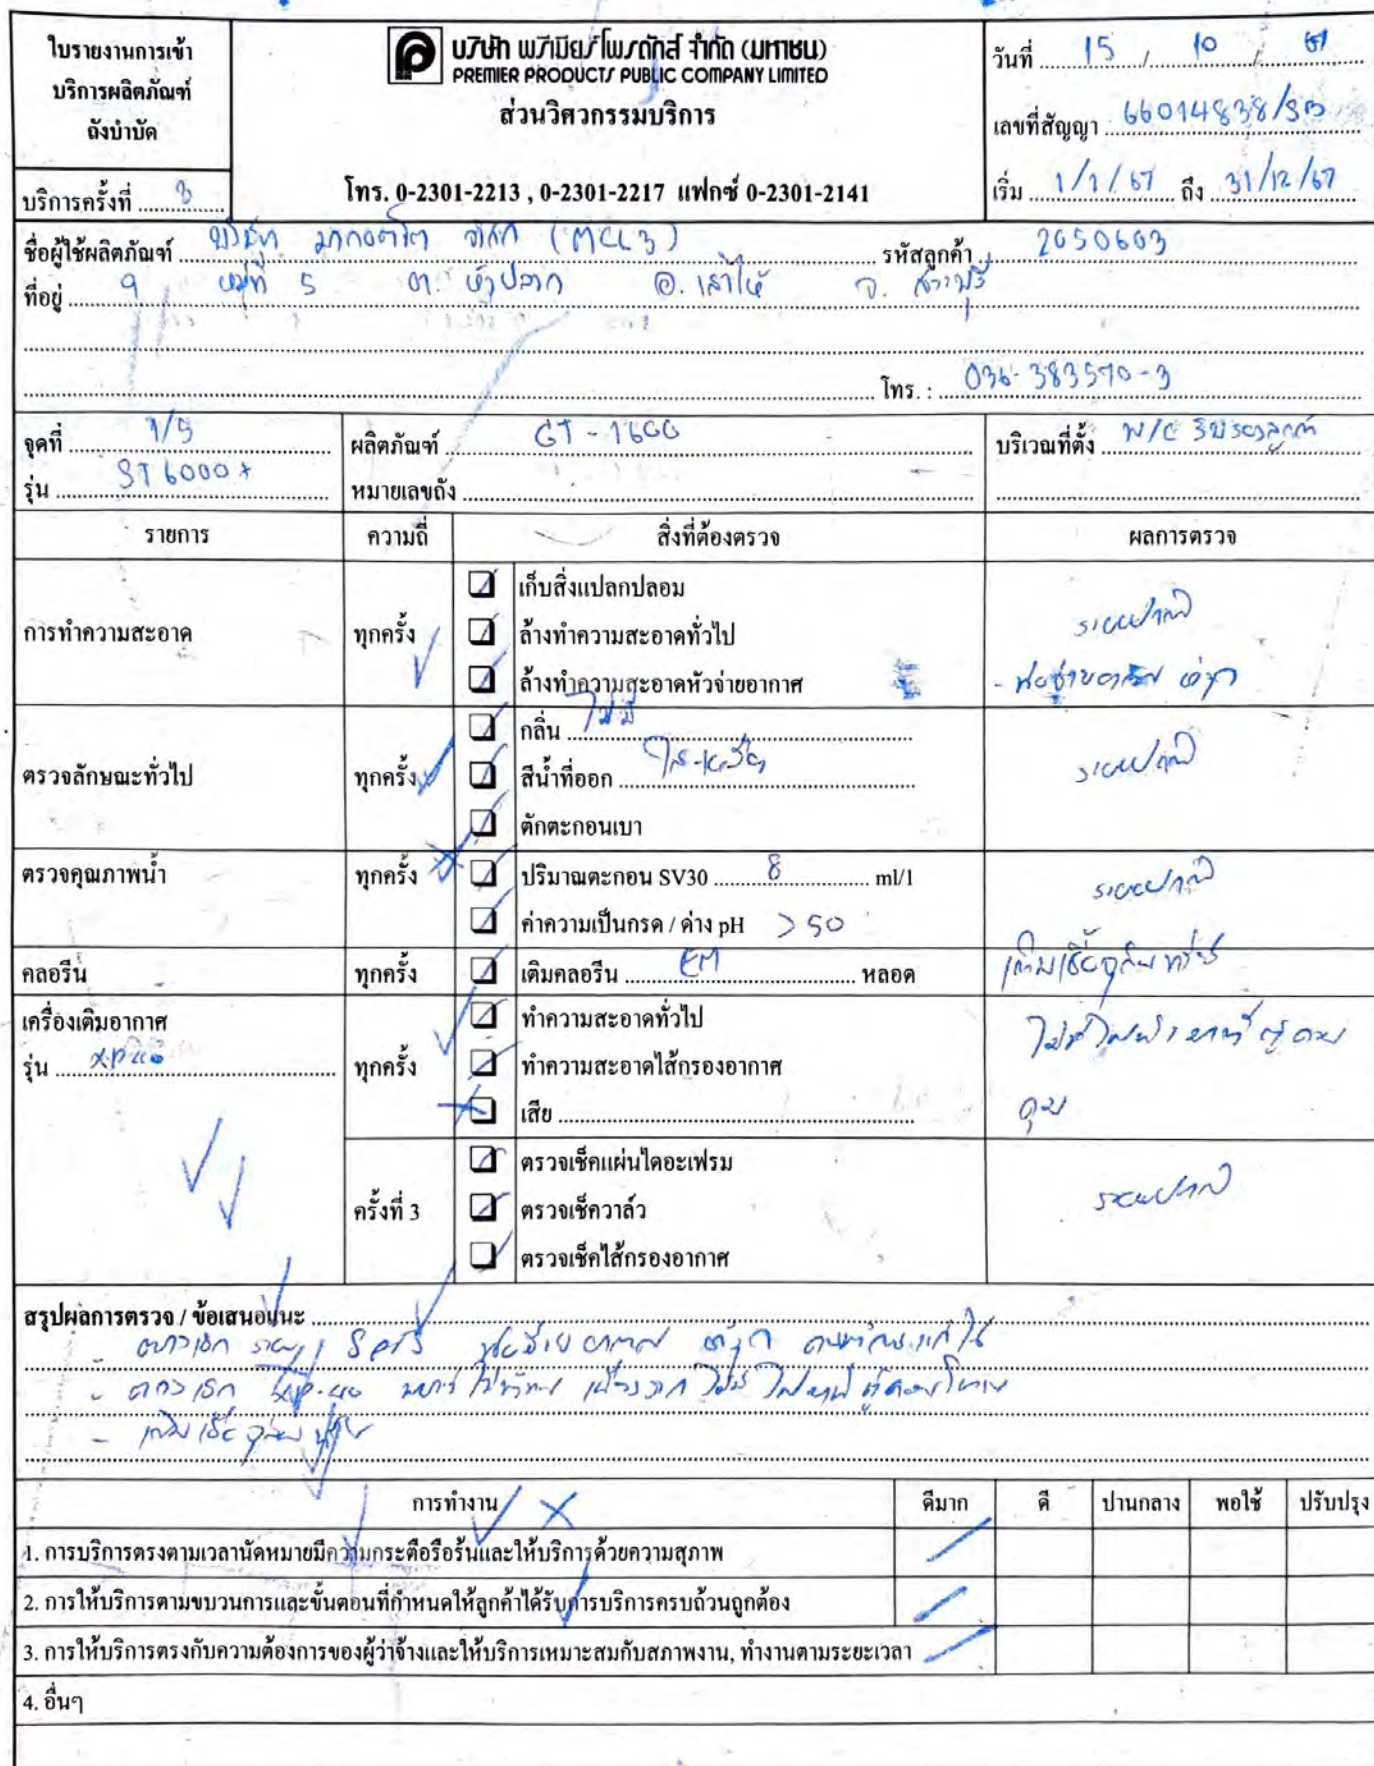 ใบรายงานการเข้า
บริการผลิตภัณฑ์
ถังบำบัด
บริษัท พรีเมียร์ โพรดักส์ จำกัด (มหาชน)
PREMIER PRODUCTS PUBLIC COMPANY LIMITED
ส่วนวิศวกรรมบริการ
โทร. 0-2301-2213 , 0-2301-2217 แฟกซ์ 0-2301-2141
วันที่ 15 / 10 / 67
เลขที่สัญญา 66014838/SB
เริ่ม 1/1/67 ถึง 31/12/67
บริการครั้งที่
ชื่อผู้ใช้ผลิตภัณฑ์ บริษัท จำกัด (MCL3) รหัสลูกค้า 2050603
ที่อยู่ 9 หมู่ที่ 5 ต. หัวปลวก อ. เสาไห้ จ. สระบุรี
โทร. : 036-383570-3
จุดที่ 1/5 ผลิตภัณฑ์ GT-1600 บริเวณที่ตั้ง W/C
รุ่น ST6000+ หมายเลขถัง
รายการ ความถี่ สิ่งที่ต้องตรวจ ผลการตรวจ
การทำความสะอาด ทุกครั้ง เก็บสิ่งแปลกปลอม
ล้างทำความสะอาดทั่วไป ระบบปกติ
ล้างทำความสะอาดหัวจ่ายอากาศ
ตรวจลักษณะทั่วไป ทุกครั้ง กลิ่น ไม่มี
สีน้ำที่ออก ระบบปกติ
ตักตะกอนเบา
ตรวจคุณภาพน้ำ ทุกครั้ง ปริมาณตะกอน SV30 8 ml/l ระบบปกติ
ค่าความเป็นกรด / ด่าง pH > 50
คลอรีน ทุกครั้ง เติมคลอรีน EM หลอด เติมเชื้อจุลินทรีย์
เครื่องเติมอากาศ ทุกครั้ง ทำความสะอาดทั่วไป
รุ่น ทำความสะอาดไส้กรองอากาศ
เสีย
ครั้งที่ 3 ตรวจเช็คแผ่นไดอะเฟรม
ตรวจเช็ควาล์ว ระบบปกติ
ตรวจเช็คไส้กรองอากาศ
สรุปผลการตรวจ / ข้อเสนอแนะ
- เติมเชื้อ
การทำงาน ดีมาก ดี ปานกลาง พอใช้ ปรับปรุง
1. การบริการตรงตามเวลานัดหมายมีความกระตือรือร้นและให้บริการด้วยความสุภาพ
2. การให้บริการตามขบวนการและขั้นตอนที่กำหนดให้ลูกค้าได้รับการบริการครบถ้วนถูกต้อง
3. การให้บริการตรงกับความต้องการของผู้ว่าจ้างและให้บริการเหมาะสมกับสภาพงาน, ทำงานตามระยะเวลา
4. อื่นๆ